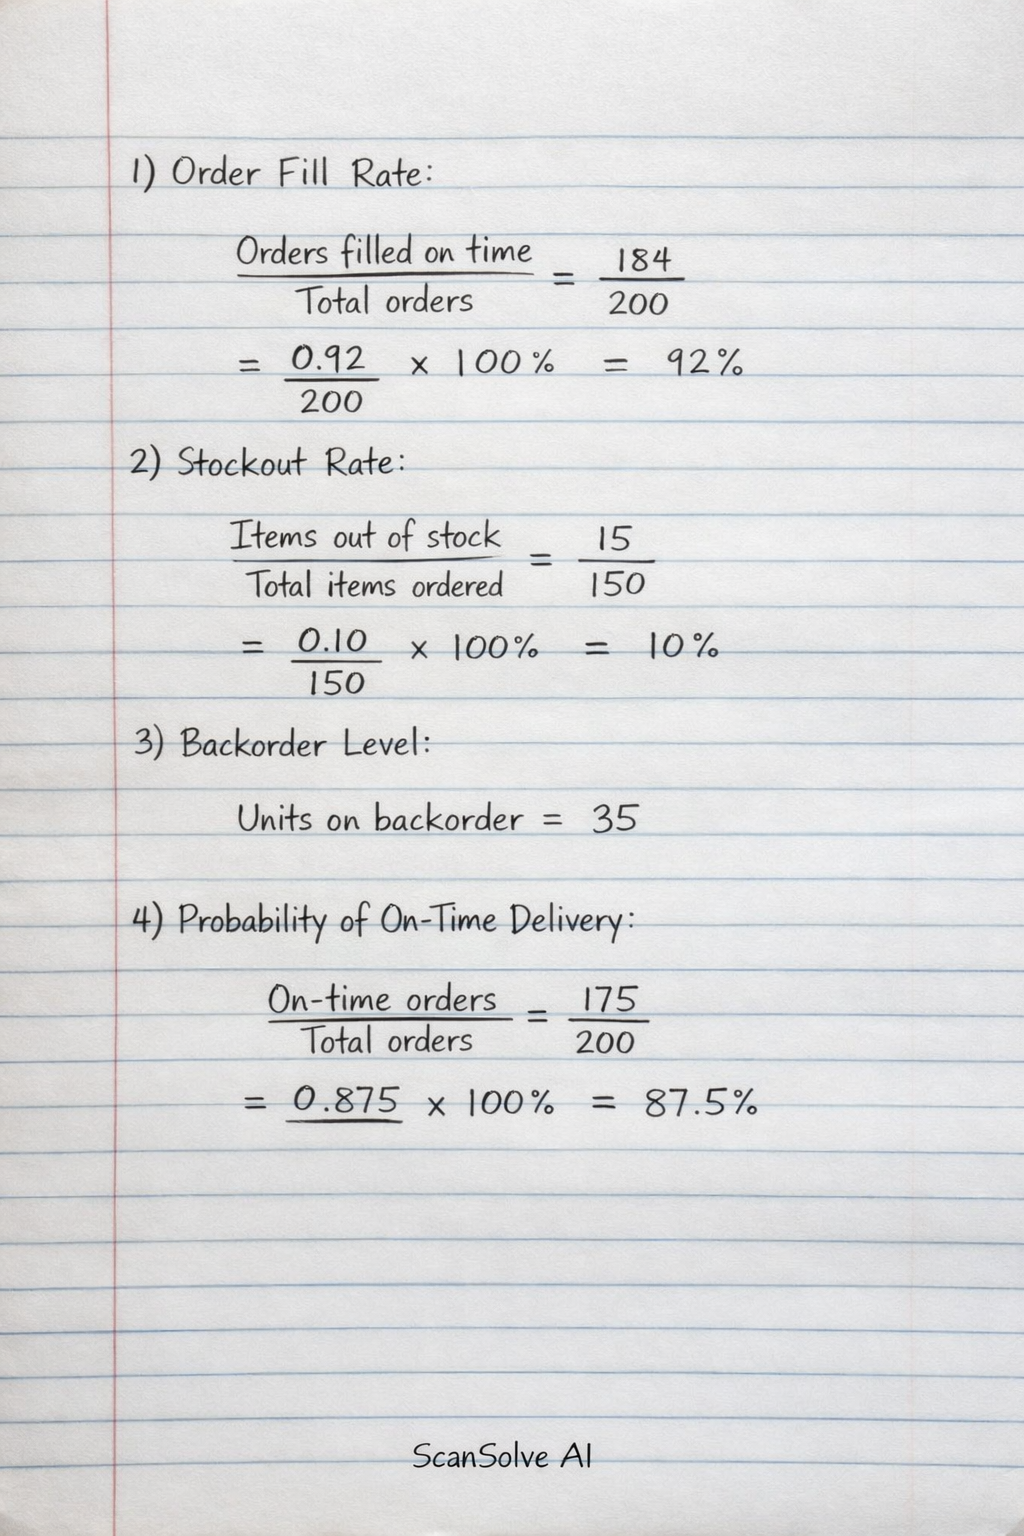 1) Order Fill Rate:
Orders filled on time / Total orders = 184 / 200
= 0.92 / 200 x 100% = 92%
2) Stockout Rate:
Items out of stock / Total items ordered = 15 / 150
= 0.10 / 150 x 100% = 10%
3) Backorder Level:
Units on backorder = 35
4) Probability of On-Time Delivery:
On-time orders / Total orders = 175 / 200
= 0.875 x 100% = 87.5%
ScanSolve AI